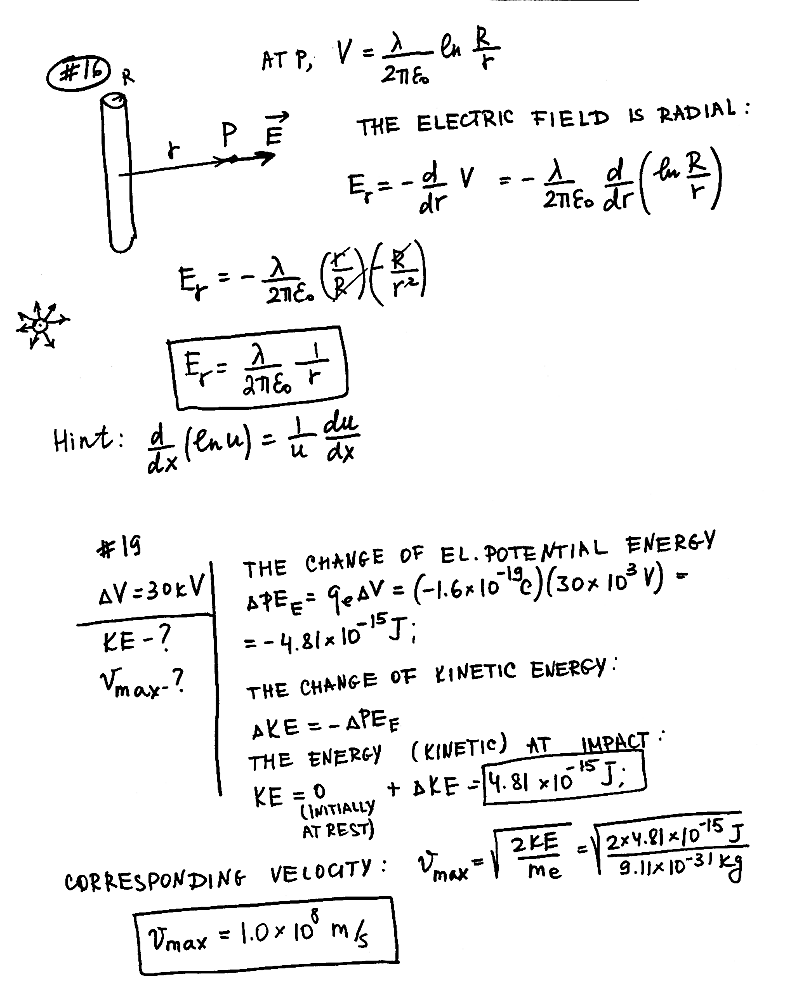 #16
R
AT P, V = λ/2πε₀ ln R/r
r P E⃗
THE ELECTRIC FIELD IS RADIAL:
Eᵣ = - d/dr V = - λ/2πε₀ d/dr (ln R/r)
Eᵣ = - λ/2πε₀ (r/R)(-R/r²)
Eᵣ = λ/2πε₀ 1/r
Hint: d/dx (ln u) = 1/u du/dx
#19
ΔV = 30kV
KE - ?
Vmax - ?
THE CHANGE OF EL. POTENTIAL ENERGY
ΔPE_E = qₑΔV = (-1.6×10⁻¹⁹C)(30×10³V) =
= -4.81×10⁻¹⁵J;
THE CHANGE OF KINETIC ENERGY:
ΔKE = -ΔPE_E
THE ENERGY (KINETIC) AT IMPACT:
KE = 0 + ΔKE = 4.81×10⁻¹⁵J;
(INITIALLY
AT REST)
CORRESPONDING VELOCITY: Vmax = √(2KE/me) = √(2×4.81×10⁻¹⁵J/9.11×10⁻³¹kg)
Vmax = 1.0×10⁸ m/s